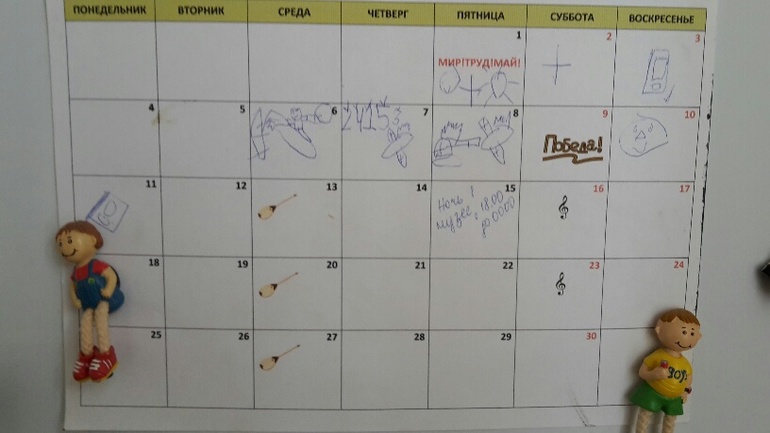 ПОНЕДЕЛЬНИК ВТОРНИК СРЕДА ЧЕТВЕРГ ПЯТНИЦА СУББОТА ВОСКРЕСЕНЬЕ
1 2 3
МИР!ТРУД!МАЙ!
4 5 6 7 8 9 10
Победа!
11 12 13 14 15 16 17
Ночь !
музее 18.00
до 00 00
18 19 20 21 22 23 24
25 26 27 28 29 30